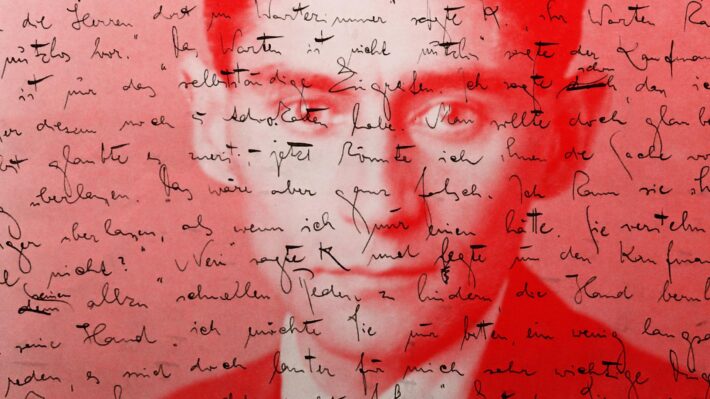 die Herren dort im Wartezimmer" sagte K., "ihr Warten ka
nutzlos vor." "Das Warten ist nicht nutzlos" sagte der Kaufmann
ist nur das selbstständige Eingreifen. Ich sagte schon, das ich
er diesem noch 5 Advokaten habe. Man sollte doch glauben
bst glaubte es zuerst -, jetzt könnte ich ihnen die Sache vo
überlassen. Das wäre aber ganz falsch. Ich kann sie ih
niger überlassen, als wenn ich nur einen hätte. Sie verstehn
nicht?" "Nein" sagte K und legte um den Kaufman
seinem allzu schnellen Reden zu hindern, die Hand beruh
seine Hand, ich möchte Sie nur bitten, ein wenig langsa
reden, es sind doch lauter für mich sehr wichtige Dinge